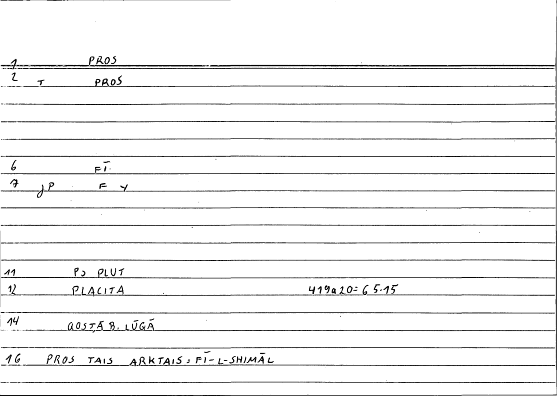 1 PROS
2 T PROS
6 FĪ
7 jP F Y
11 PS PLUT
12 PLACITA 419a20=65.15
14 QOSṬĀ B. LŪQĀ
16 PROS TAIS ARKTAIS = FĪ-L-SHIMĀL